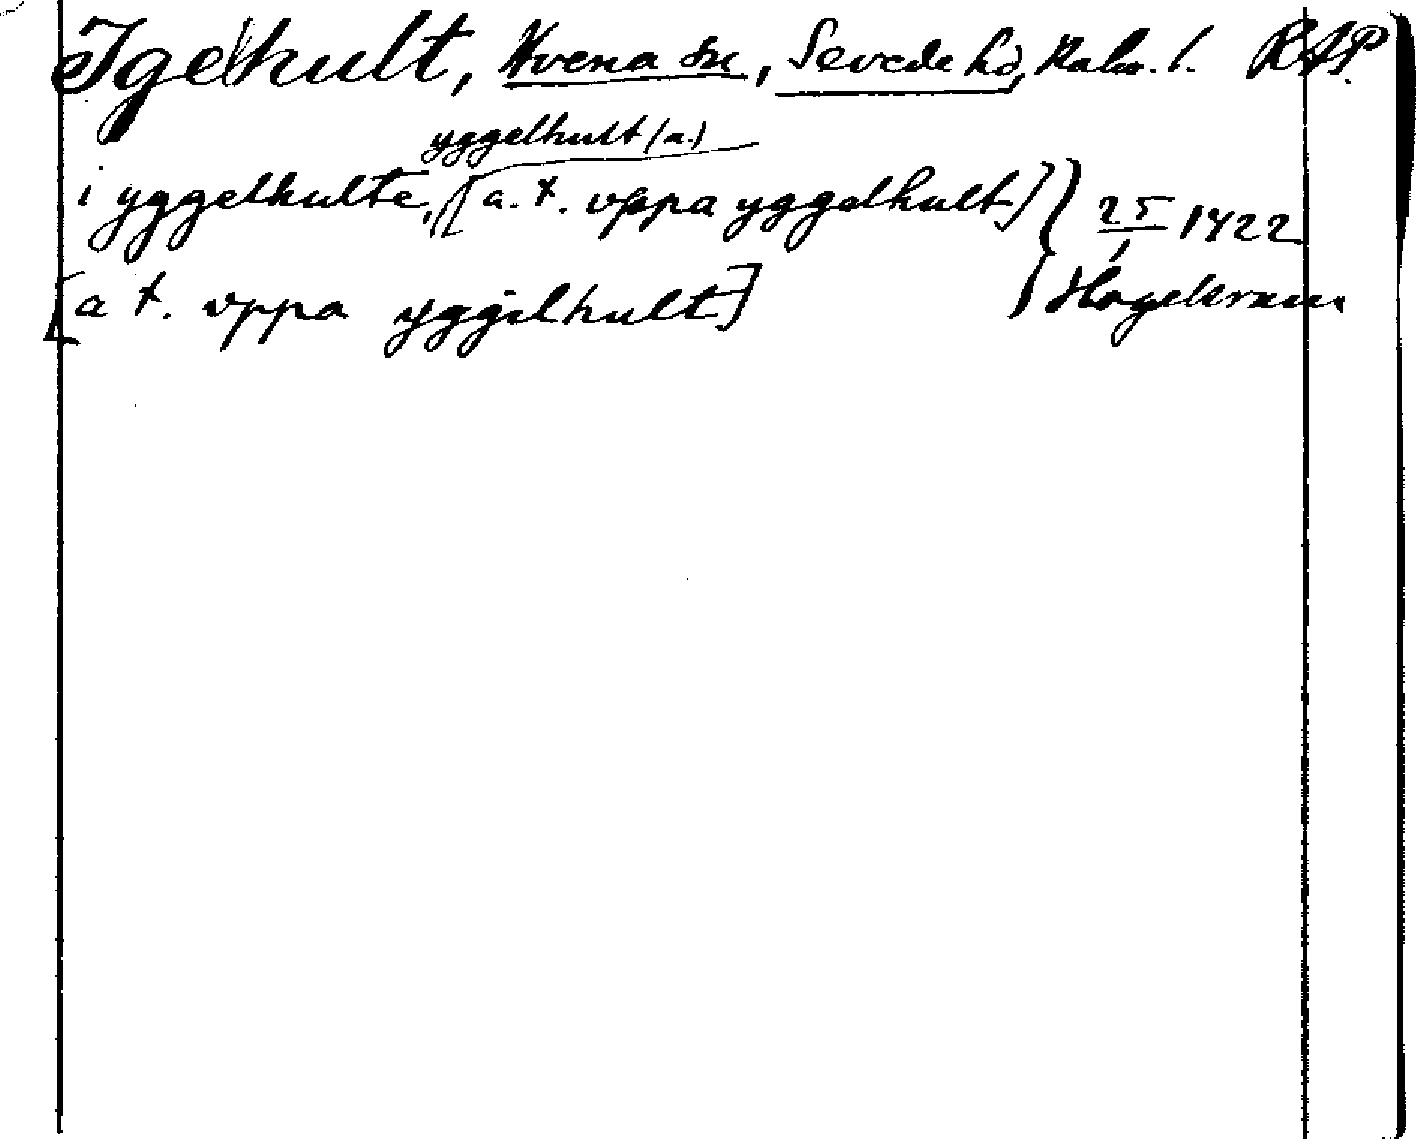 Igelhult, Hvena sn, Sevede hd, Kalm. l. RAP.
yggelhult (a.)
i yggelhulte, [a. t. vppa yggelhult] } 25/1 1422
[a t. vppa yggilhult]